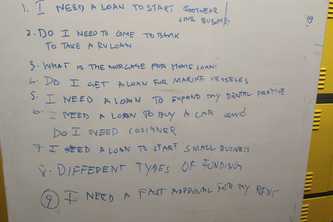 1. I NEED A LOAN TO START FOOTWEAR/
LINE BUSINESS
2. DO I NEED TO COME TO BANK
TO TAKE A RV LOAN
3. WHAT IS THE MORGAGE FOR HOME LOAN?
4. DO I GET A LOAN FOR MARINE VESSELES
5. I NEED A LOAN TO EXPAND MY DENTAL PRACTIVE
6. I NEED A LOAN TO BUY A CAR and
DO I NEED COSIGNER
7. I NEED A LOAN TO START SMALL BUSINESS
8. DIFFERENT TYPES OF FUNDING
9 I NEED A FAST APPROVAL FOR MY